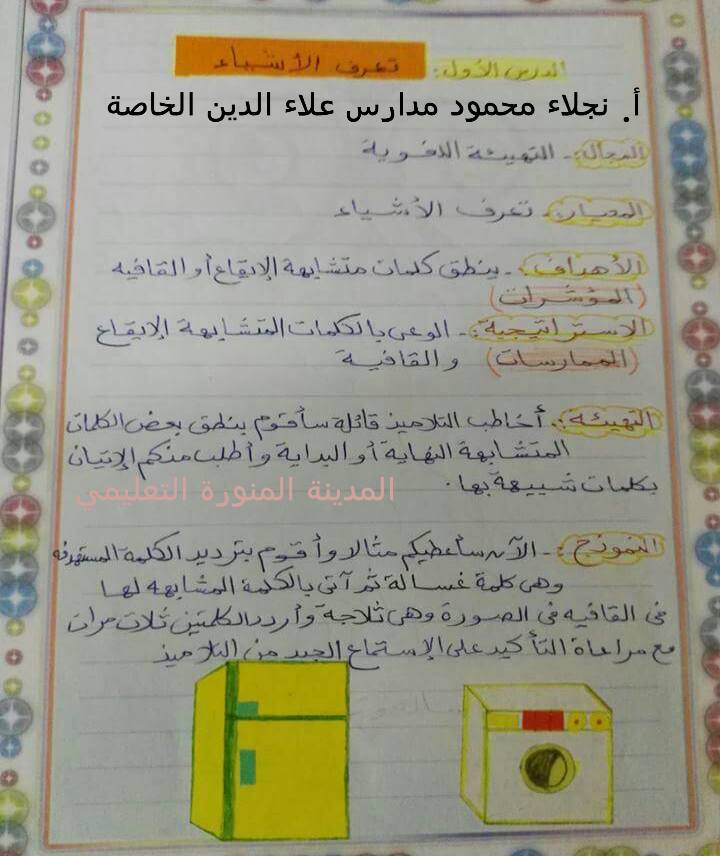 الدرس الأول: تعرف الأشياء
أ. نجلاء محمود مدارس علاء الدين الخاصة
المجال:- التهيئة اللغوية
المعيار:- تعرف الأشياء
الأهداف:- ينطق كلمات متشابهة الإيقاع أو القافيه
(المؤشرات)
الاستراتيجية:- الوعى بالكلمات المتشابهة الإيقاع
(الممارسات) والقافية
التهيئة:- أخاطب التلاميذ قائلة سأقوم بنطق بعض الكلمات
المتشابهة النهاية أو البداية وأطلب منكم الإتيان
بكلمات شبيهة بها.
المدينة المنورة التعليمي
النموذج:- الآن سأعطيكم مثالا وأقوم بترديد الكلمة المستهدفه
وهى كلمة غسالة ثم آتى بالكلمة المشابهه لها
فى القافيه فى الصورة وهى ثلاجة وأردد الكلمتين ثلاث مرات
مع مراعاة التأكيد على الإستماع الجيد من التلاميذ